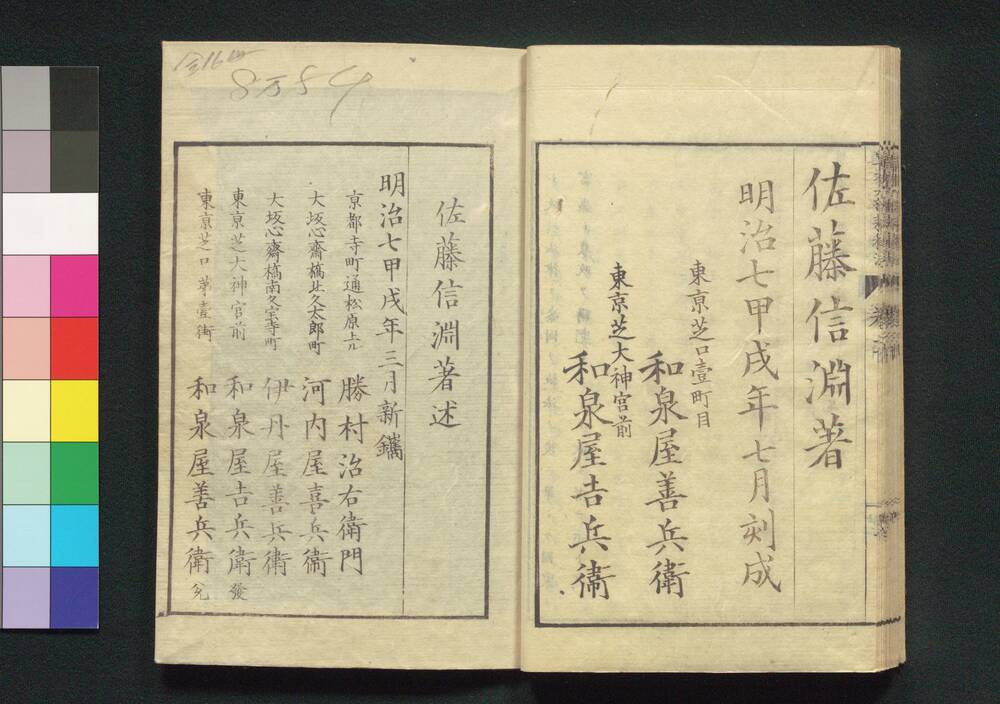 佐藤信淵著
明治七甲戌年七月刻成
東京芝口壹町目
和泉屋善兵衛
東京芝大神宮前
和泉屋吉兵衛
佐藤信淵著述
明治七甲戌年三月新鐫
京都寺町通松原上ル
勝村治右衛門
大坂心齋橋北久太郎町
河内屋喜兵衛
大坂心齋橋南久宝寺町
伊丹屋善兵衛
東京芝大神宮前
和泉屋吉兵衛發
東京芝口第壹街
和泉屋善兵衛兌